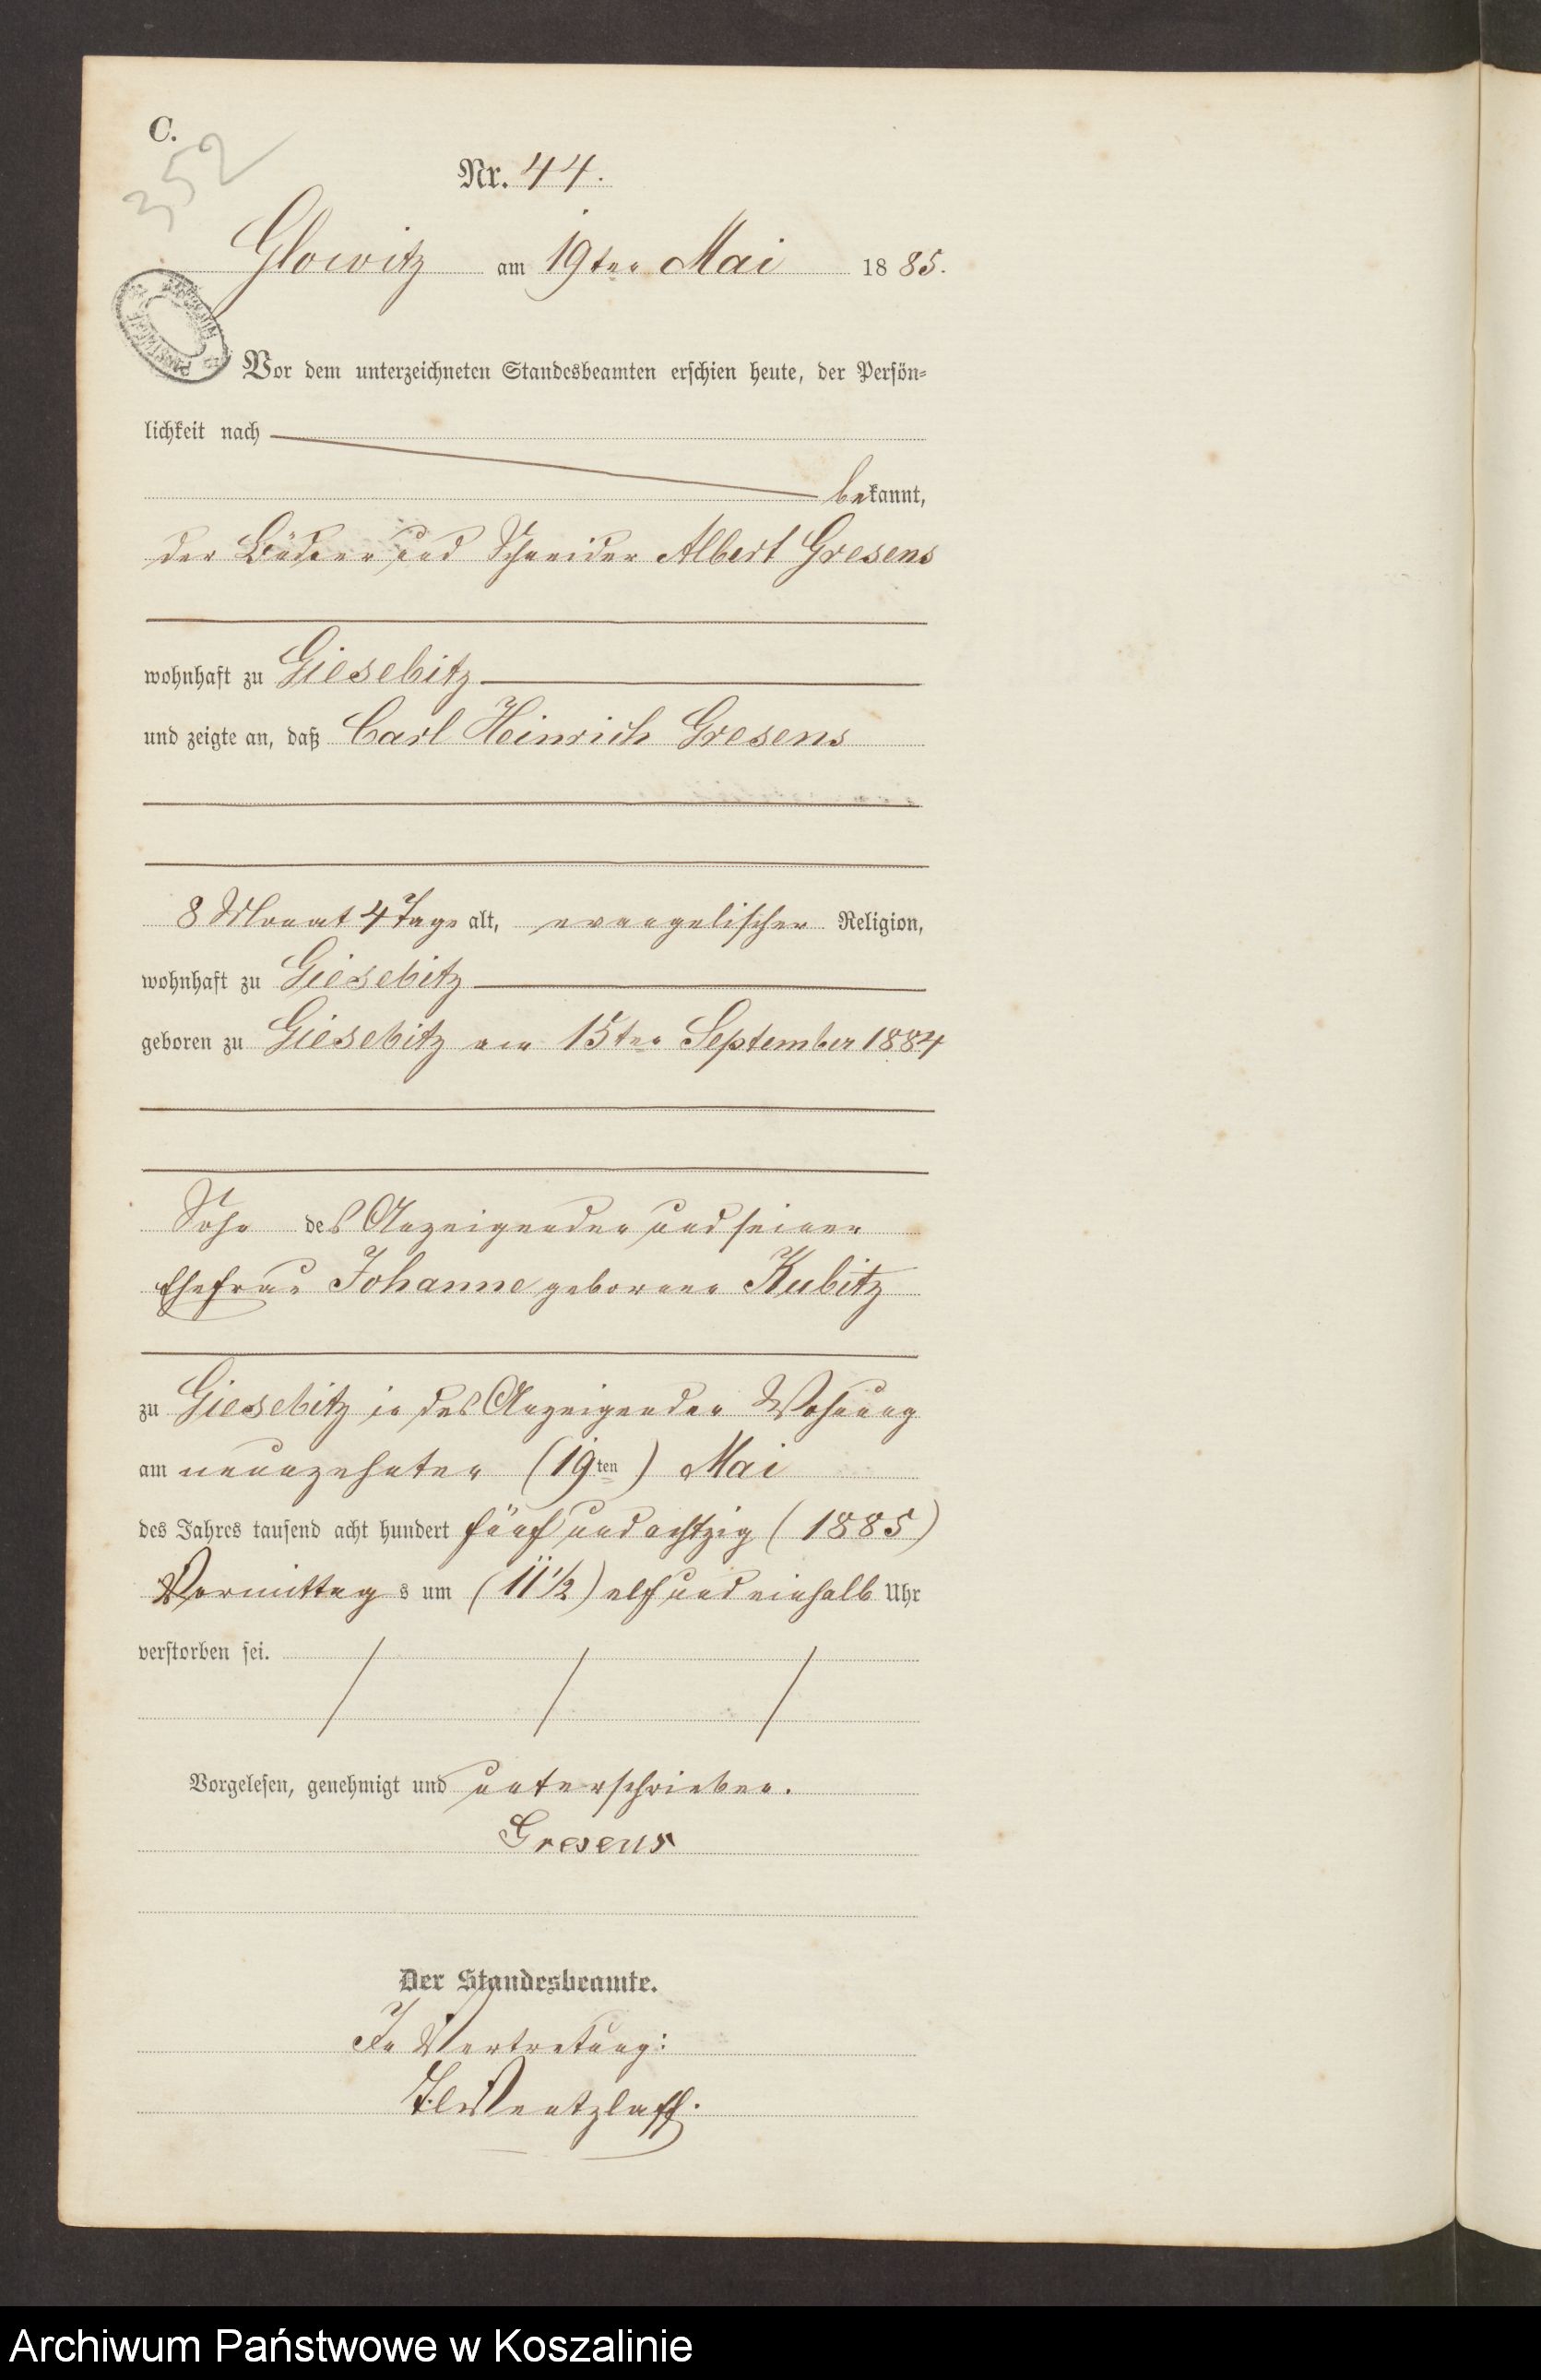 C.
352
Nr. 44.
Glowitz am 19ten Mai 1885.
Vor dem unterzeichneten Standesbeamten erschien heute, der Persön-
lichkeit nach
bekannt,
der Büdner und Schneider Albert Gresens
wohnhaft zu Giesebitz
und zeigte an, daß Carl Heinrich Gresens
8 Monat 4 Tage alt, evangelischer Religion,
wohnhaft zu Giesebitz
geboren zu Giesebitz am 15ten September 1884
Sohn des Anzeigenden und seiner
Ehefrau Johanne geborenen Kubitz
zu Giesebitz in des Anzeigenden Wohnung
am neunzehnten (19ten) Mai
des Jahres tausend acht hundert fünf und achtzig (1885)
Vormittags um (11 1/2) elf und einhalb Uhr
verstorben sei.
Vorgelesen, genehmigt und unterschrieben.
Gresens
Der Standesbeamte.
In Vertretung:
Wentzlaff.
Archiwum Państwowe w Koszalinie